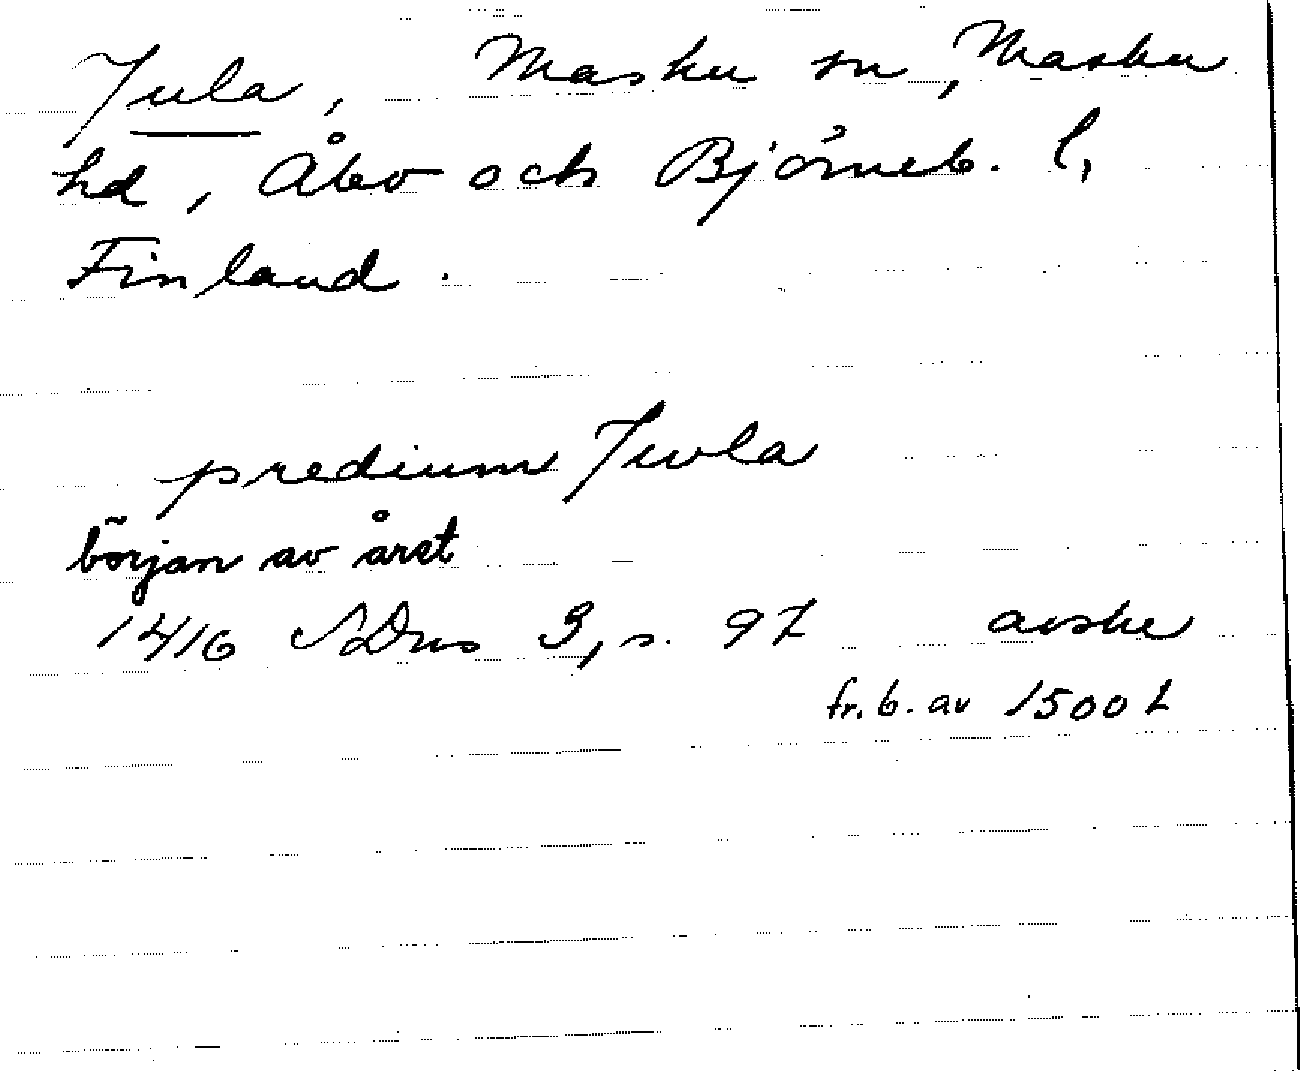 Jula, Masku sn, Masku
hd, Åbo och Björneb. l,
Finland.
predium Jwla
början av året
1416 SDns 3, s. 97 avskr
fr. b. av 1500 t